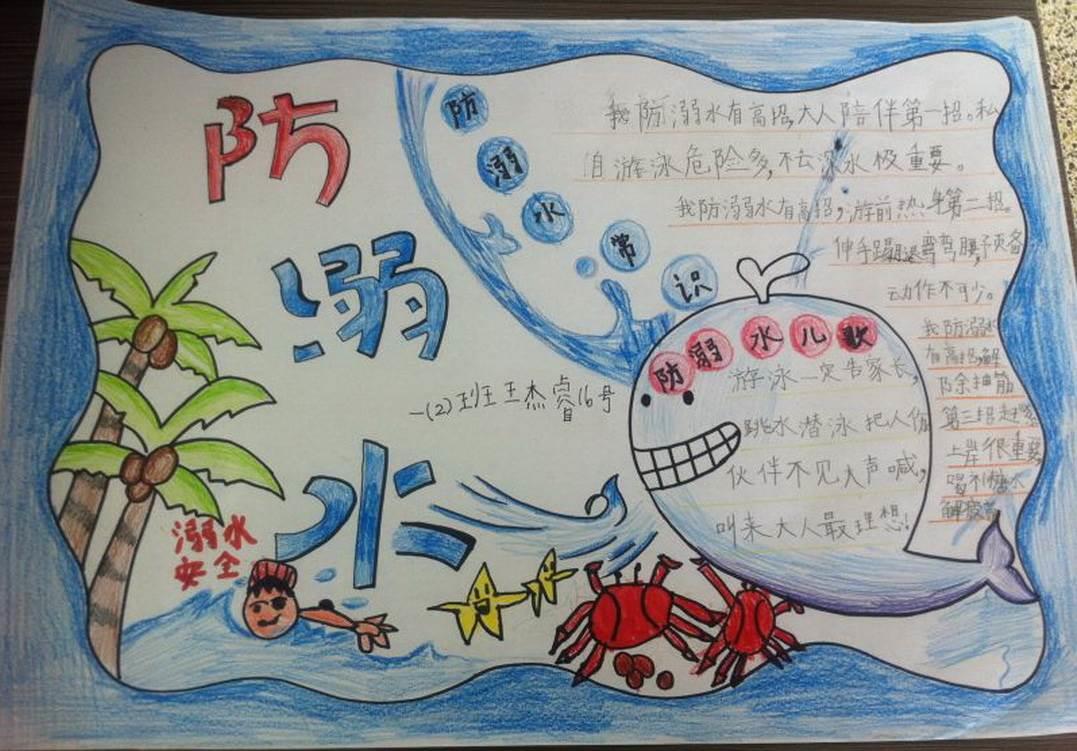 防
溺
水
一(2)班王杰睿16号
溺水
安全
防溺水常识
我防溺水有高招,大人陪伴第一招。私
自游泳危险多,不去深水极重要。
我防溺水有高招,游前热身第二招。
伸手踢腿弯弯腰,预备
动作不可少。
我防溺水
有高招,解
除抽筋
第三招赶紧
上岸很重要,
喝补糖水
解疲劳
防溺水儿歌
游泳一定告家长,
跳水潜泳把人伤
伙伴不见大声喊,
叫来大人最理想!